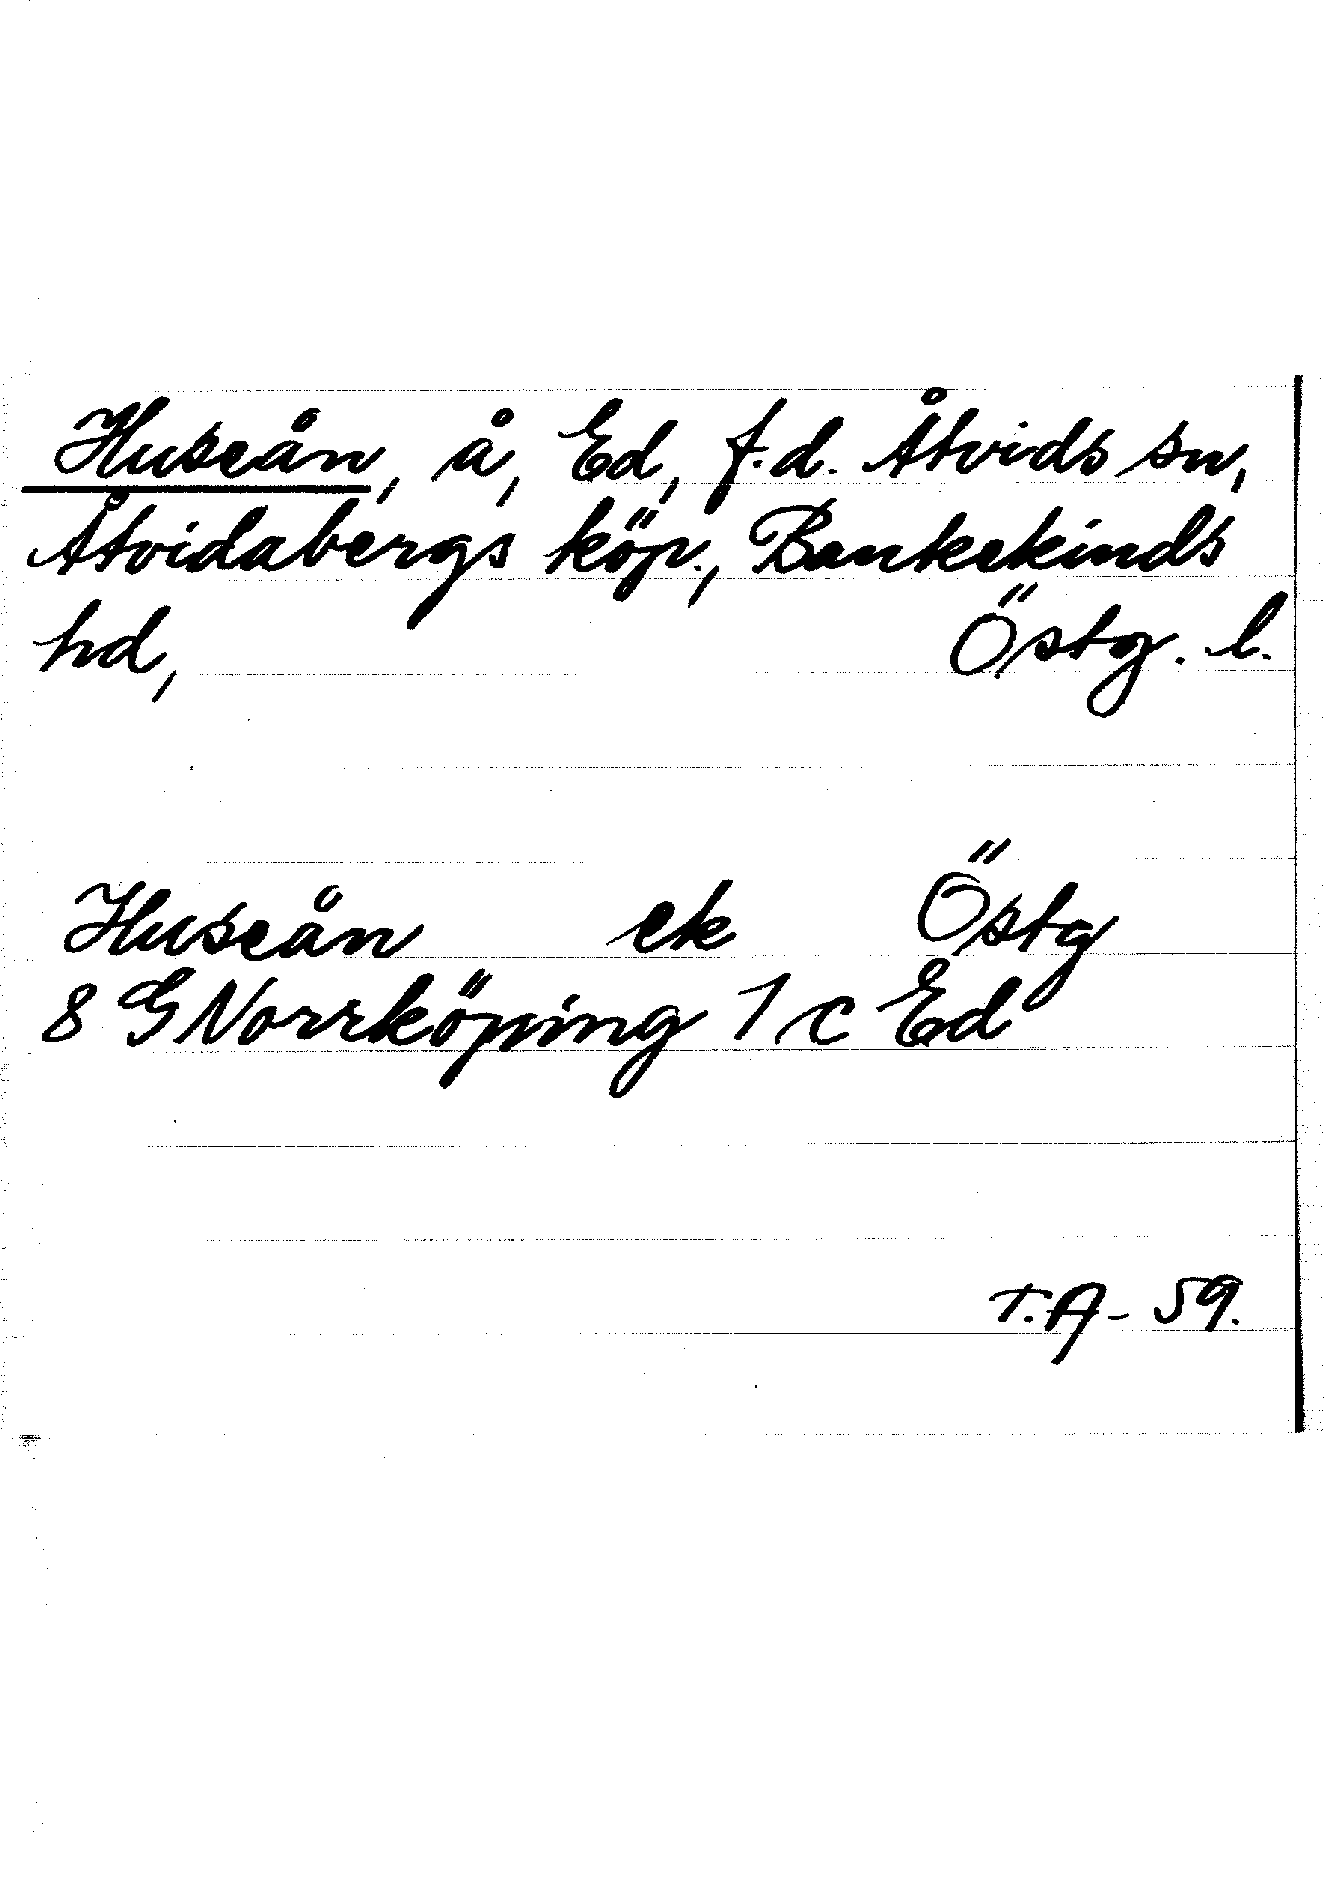 Huseån, å, Ed, f.d. Åtvids sn,
Åtvidabergs köp., Bankekinds
hd, Östg. l.
Huseån ek Östg
8 G Norrköping 1 c Ed
T.A - 59.